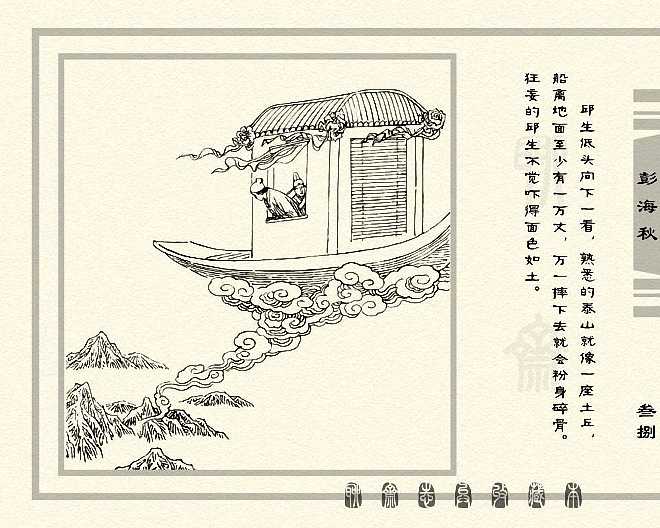 邱生低头向下一看，熟悉的泰山就像一座土丘，
船离地面至少有一万丈，万一摔下去就会粉身碎骨。
狂妄的邱生不觉吓得面色如土。
彭海秋
叁捌